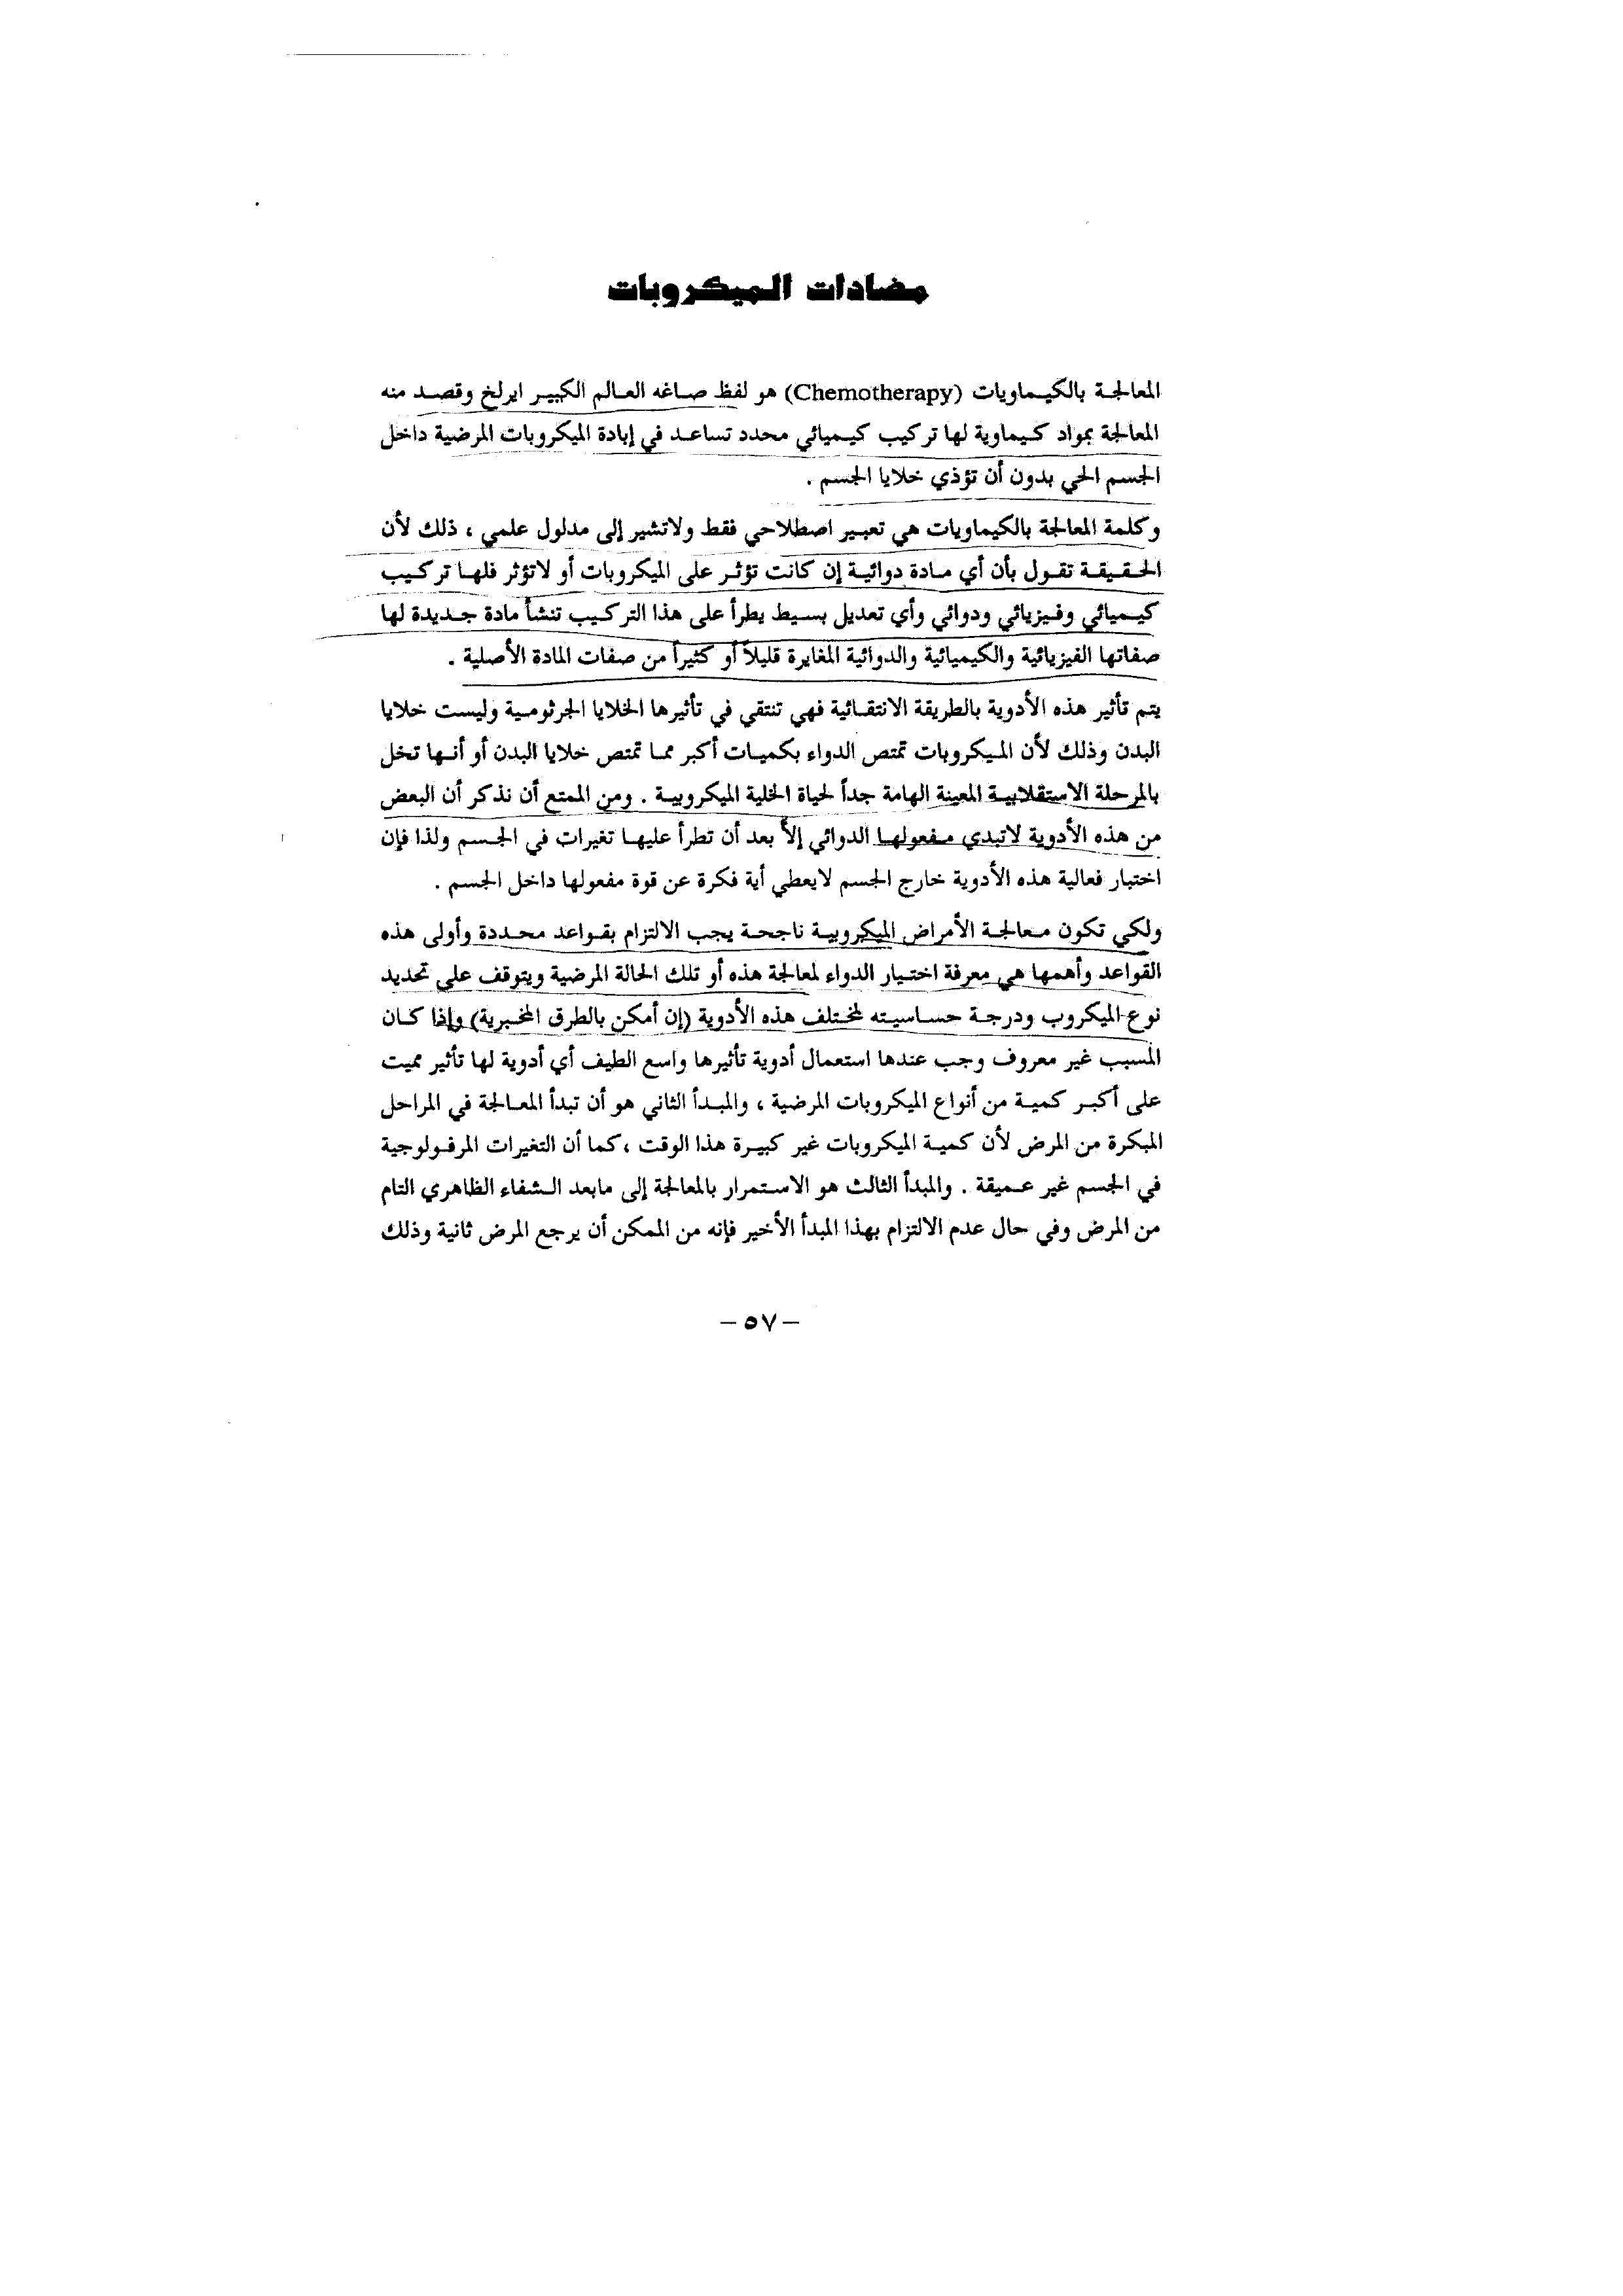 مضادات الميكروبات
المعالجة بالكيماويات (Chemotherapy) هو لفظ صاغه العالم الكبير ايرلخ وقصد منه
المعالجة بمواد كيماوية لها تركيب كيميائي محدد تساعد في إبادة الميكروبات المرضية داخل
الجسم الحي بدون أن تؤذي خلايا الجسم .
وكلمة المعالجة بالكيماويات هي تعبير اصطلاحي فقط ولاتشير إلى مدلول علمي ، ذلك لأن
الحقيقة تقول بأن أي مادة دوائية إن كانت تؤثر على الميكروبات أو لاتؤثر فلها تركيب
كيميائي وفيزيائي ودوائي وأي تعديل بسيط يطرأ على هذا التركيب تنشأ مادة جديدة لها
صفاتها الفيزيائية والكيميائية والدوائية المغايرة قليلاً أو كثيراً من صفات المادة الأصلية .
يتم تأثير هذه الأدوية بالطريقة الانتقائية فهي تنتقي في تأثيرها الخلايا الجرثومية وليست خلايا
البدن وذلك لأن الميكروبات تمتص الدواء بكميات أكبر مما تمتص خلايا البدن أو أنها تخل
بالمرحلة الاستقلابية المعينة الهامة جداً لحياة الخلية الميكروبية . ومن الممتع أن نذكر أن البعض
من هذه الأدوية لاتبدي مفعولها الدوائي إلاّ بعد أن تطرأ عليها تغيرات في الجسم ولذا فإن
اختبار فعالية هذه الأدوية خارج الجسم لايعطي أية فكرة عن قوة مفعولها داخل الجسم .
ولكي تكون معالجة الأمراض الميكروبية ناجحة يجب الالتزام بقواعد محددة وأولى هذه
القواعد وأهمها هي معرفة اختيار الدواء لمعالجة هذه أو تلك الحالة المرضية ويتوقف على تحديد
نوع الميكروب ودرجة حساسيته لمختلف هذه الأدوية (إن أمكن بالطرق المخبرية) وإذا كان
المسبب غير معروف وجب عندها استعمال أدوية تأثيرها واسع الطيف أي أدوية لها تأثير مميت
على أكبر كمية من أنواع الميكروبات المرضية ، والمبدأ الثاني هو أن تبدأ المعالجة في المراحل
المبكرة من المرض لأن كمية الميكروبات غير كبيرة هذا الوقت ، كما أن التغيرات المرفولوجية
في الجسم غير عميقة . والمبدأ الثالث هو الاستمرار بالمعالجة إلى مابعد الشفاء الظاهري التام
من المرض وفي حال عدم الالتزام بهذا المبدأ الأخير فإنه من الممكن أن يرجع المرض ثانية وذلك
– ٥٧ –